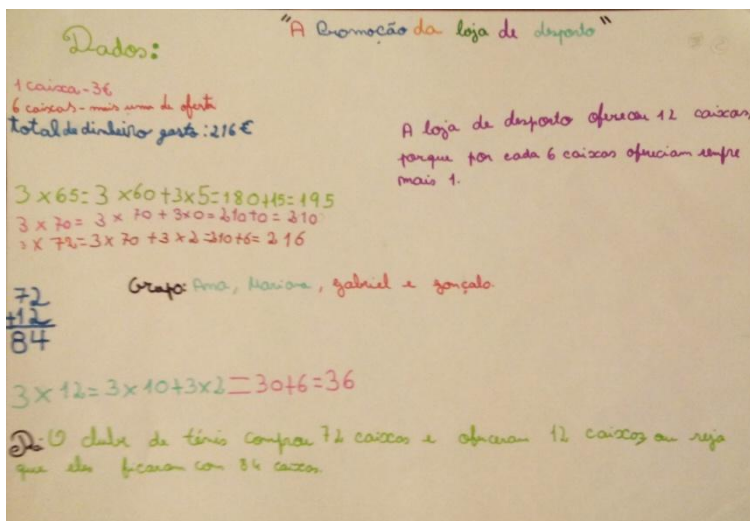 "A Promoção da loja de desporto"
Dados:
1 caixa - 3€
6 caixas - mais uma de oferta
total de dinheiro gasto: 216€
A loja de desporto ofereceu 12 caixas,
porque por cada 6 caixas ofereciam sempre
mais 1.
3 x 65 = 3 x 60 + 3 x 5 = 180 + 15 = 195
3 x 70 = 3 x 70 + 3 x 0 = 210 + 0 = 210
3 x 72 = 3 x 70 + 3 x 2 = 210 + 6 = 216
Grupo: Ana, Mariana, gabriel e gonçalo.
72
+12
84
3 x 12 = 3 x 10 + 3 x 2 = 30 + 6 = 36
R: O clube de ténis comprou 72 caixas e ofereceram 12 caixas, ou seja
que eles ficaram com 84 caixas.